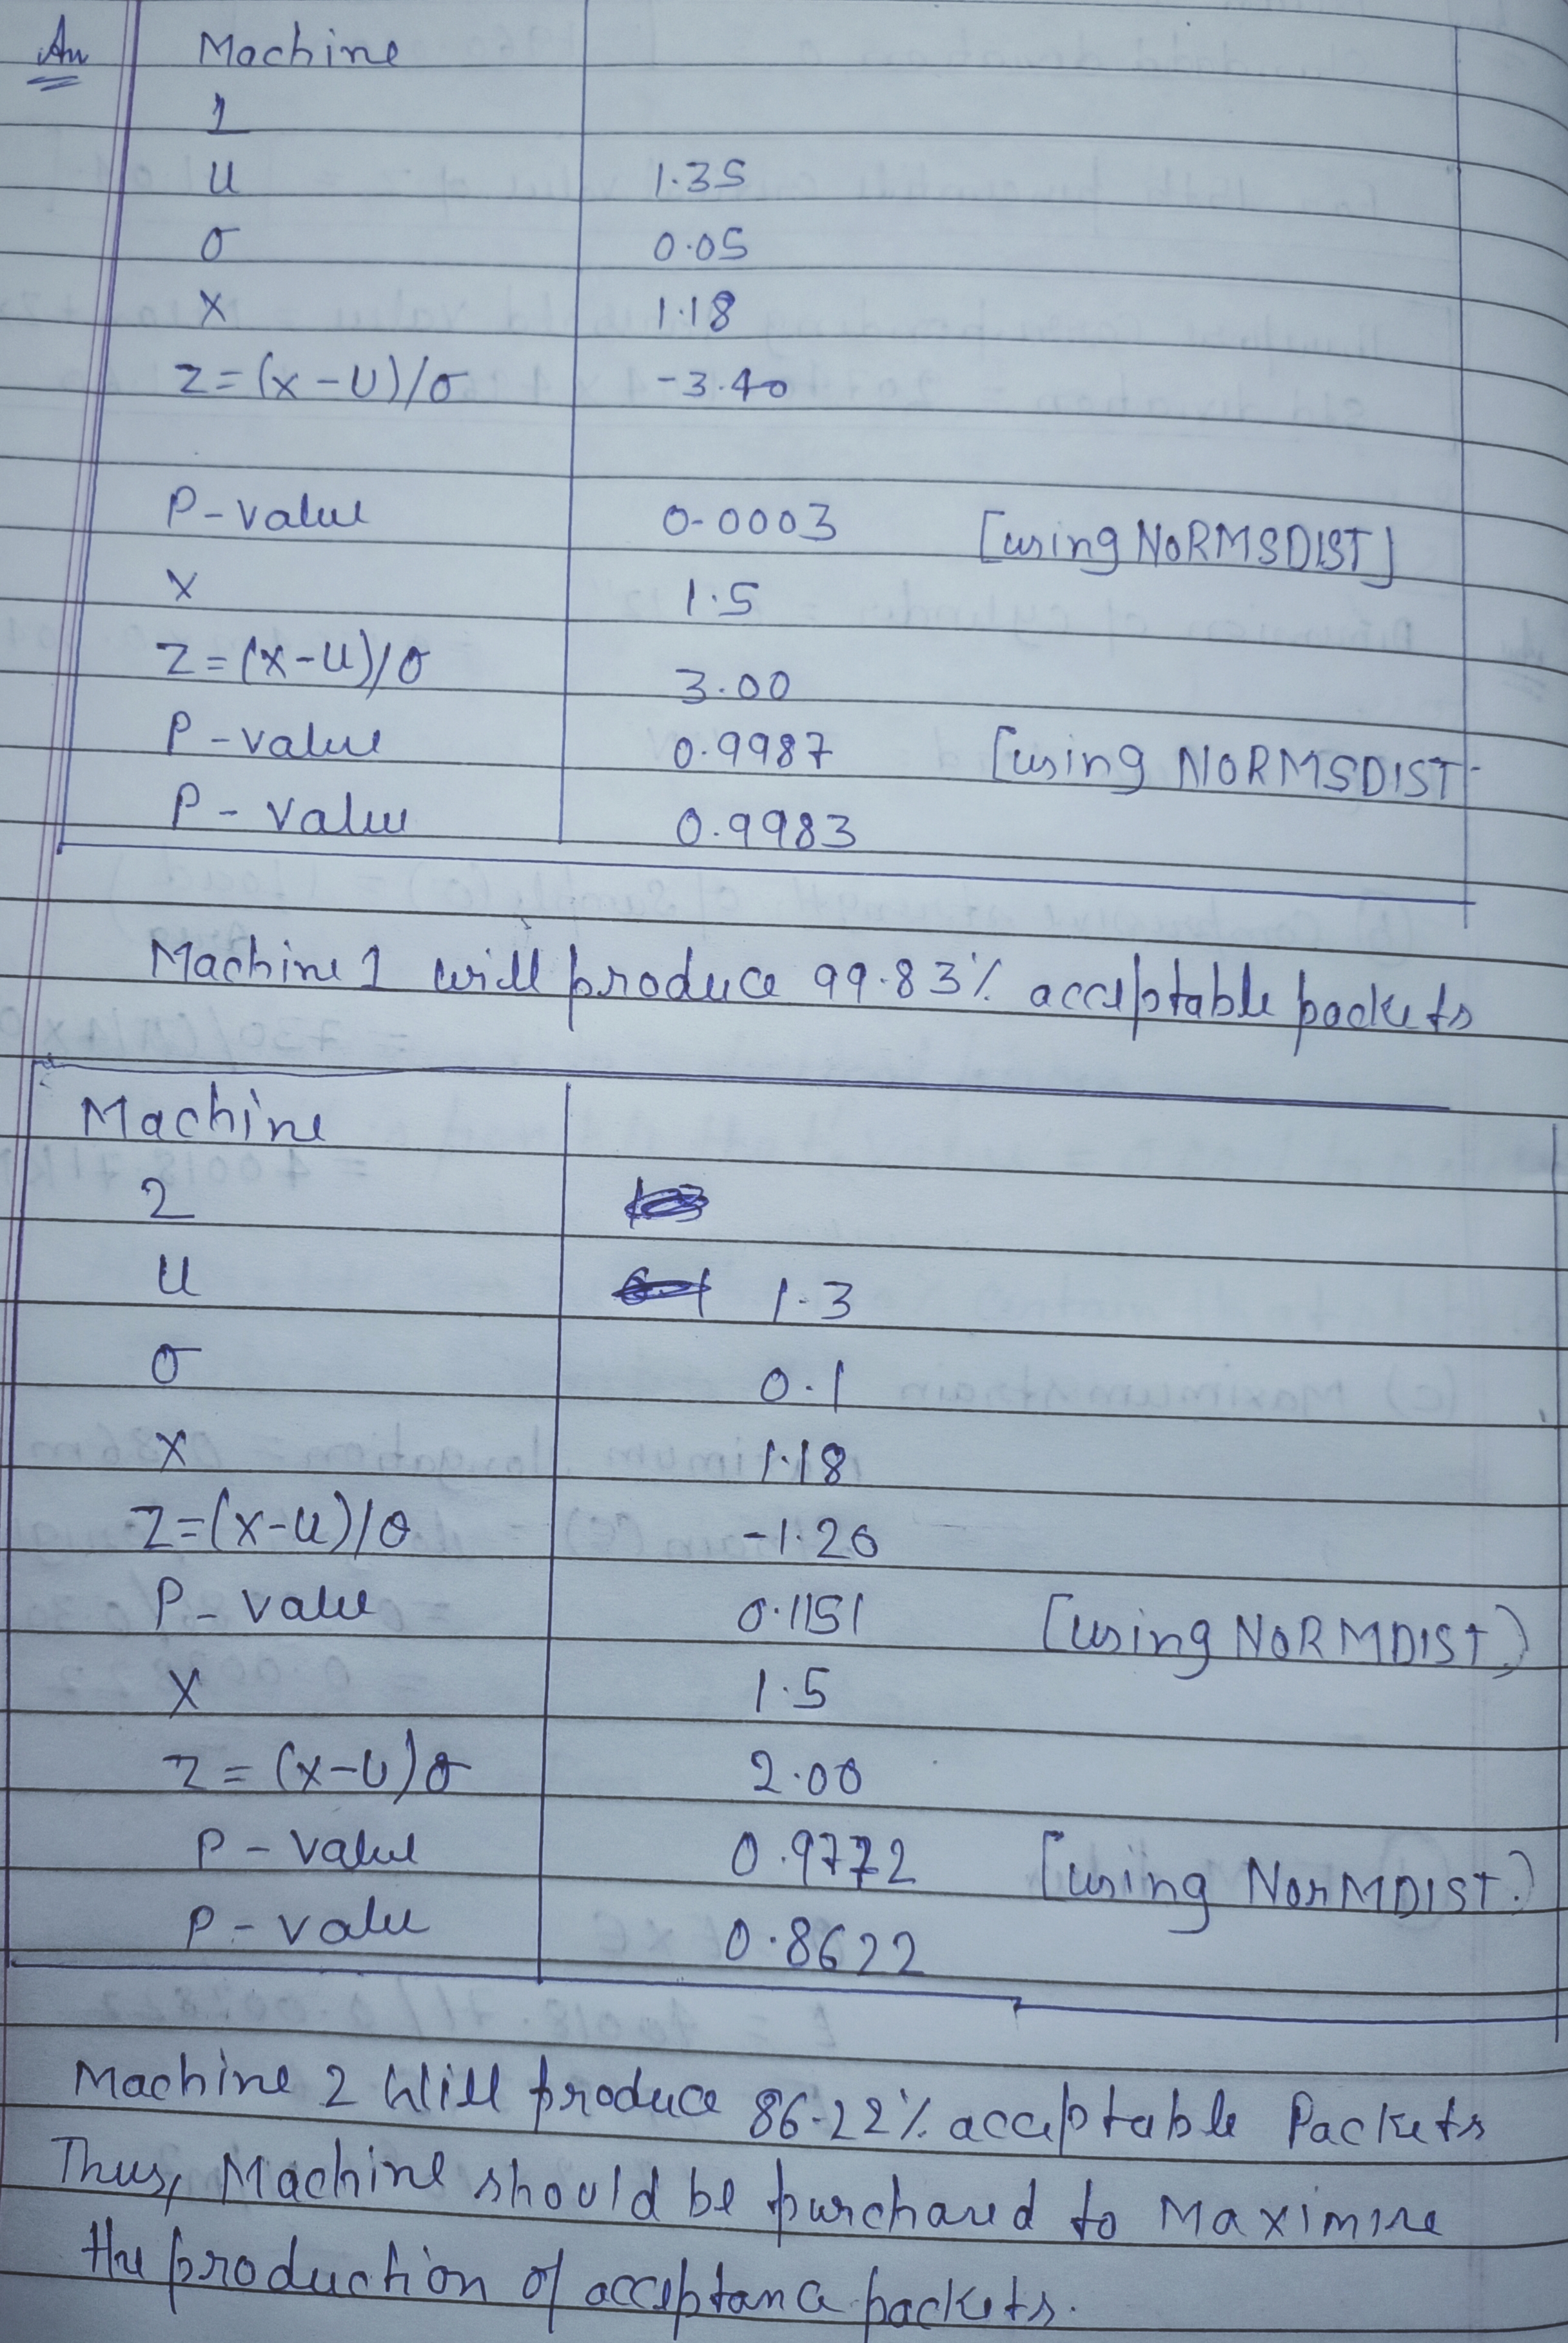 An Machine
1
u 1.35
σ 0.05
x 1.18
z=(x-u)/σ -3.40
P-value 0.0003 [using NORMSDIST]
x 1.5
z=(x-u)/σ 3.00
P-value 0.9987 [using NORMSDIST
P-value 0.9983
Machine 1 will produce 99.83% acceptable packets
Machine
2
u 1.3
σ 0.1
x 1.18
z=(x-u)/σ -1.20
P-value 0.1151 [using NORMDIST)
x 1.5
z=(x-u)σ 2.00
P-value 0.9772 [using NORMDIST.)
P-value 0.8622
Machine 2 Will produce 86.22% acceptable Packets
Thus, Machine should be purchased to Maximize
the production of acceptance packets.